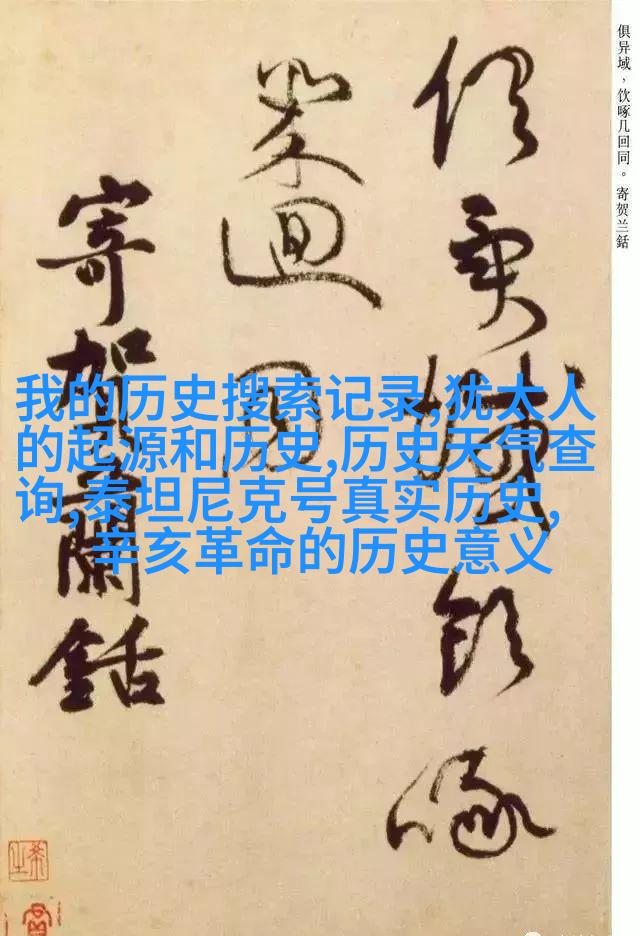 俱异域，饮啄几回同。寄贺兰銛
俱異域飲啄
幾迴同
寄賀蘭銛
我的历史搜索记录,犹太人
的起源和历史,历史天气查
询,泰坦尼克号真实历史,
辛亥革命的历史意义